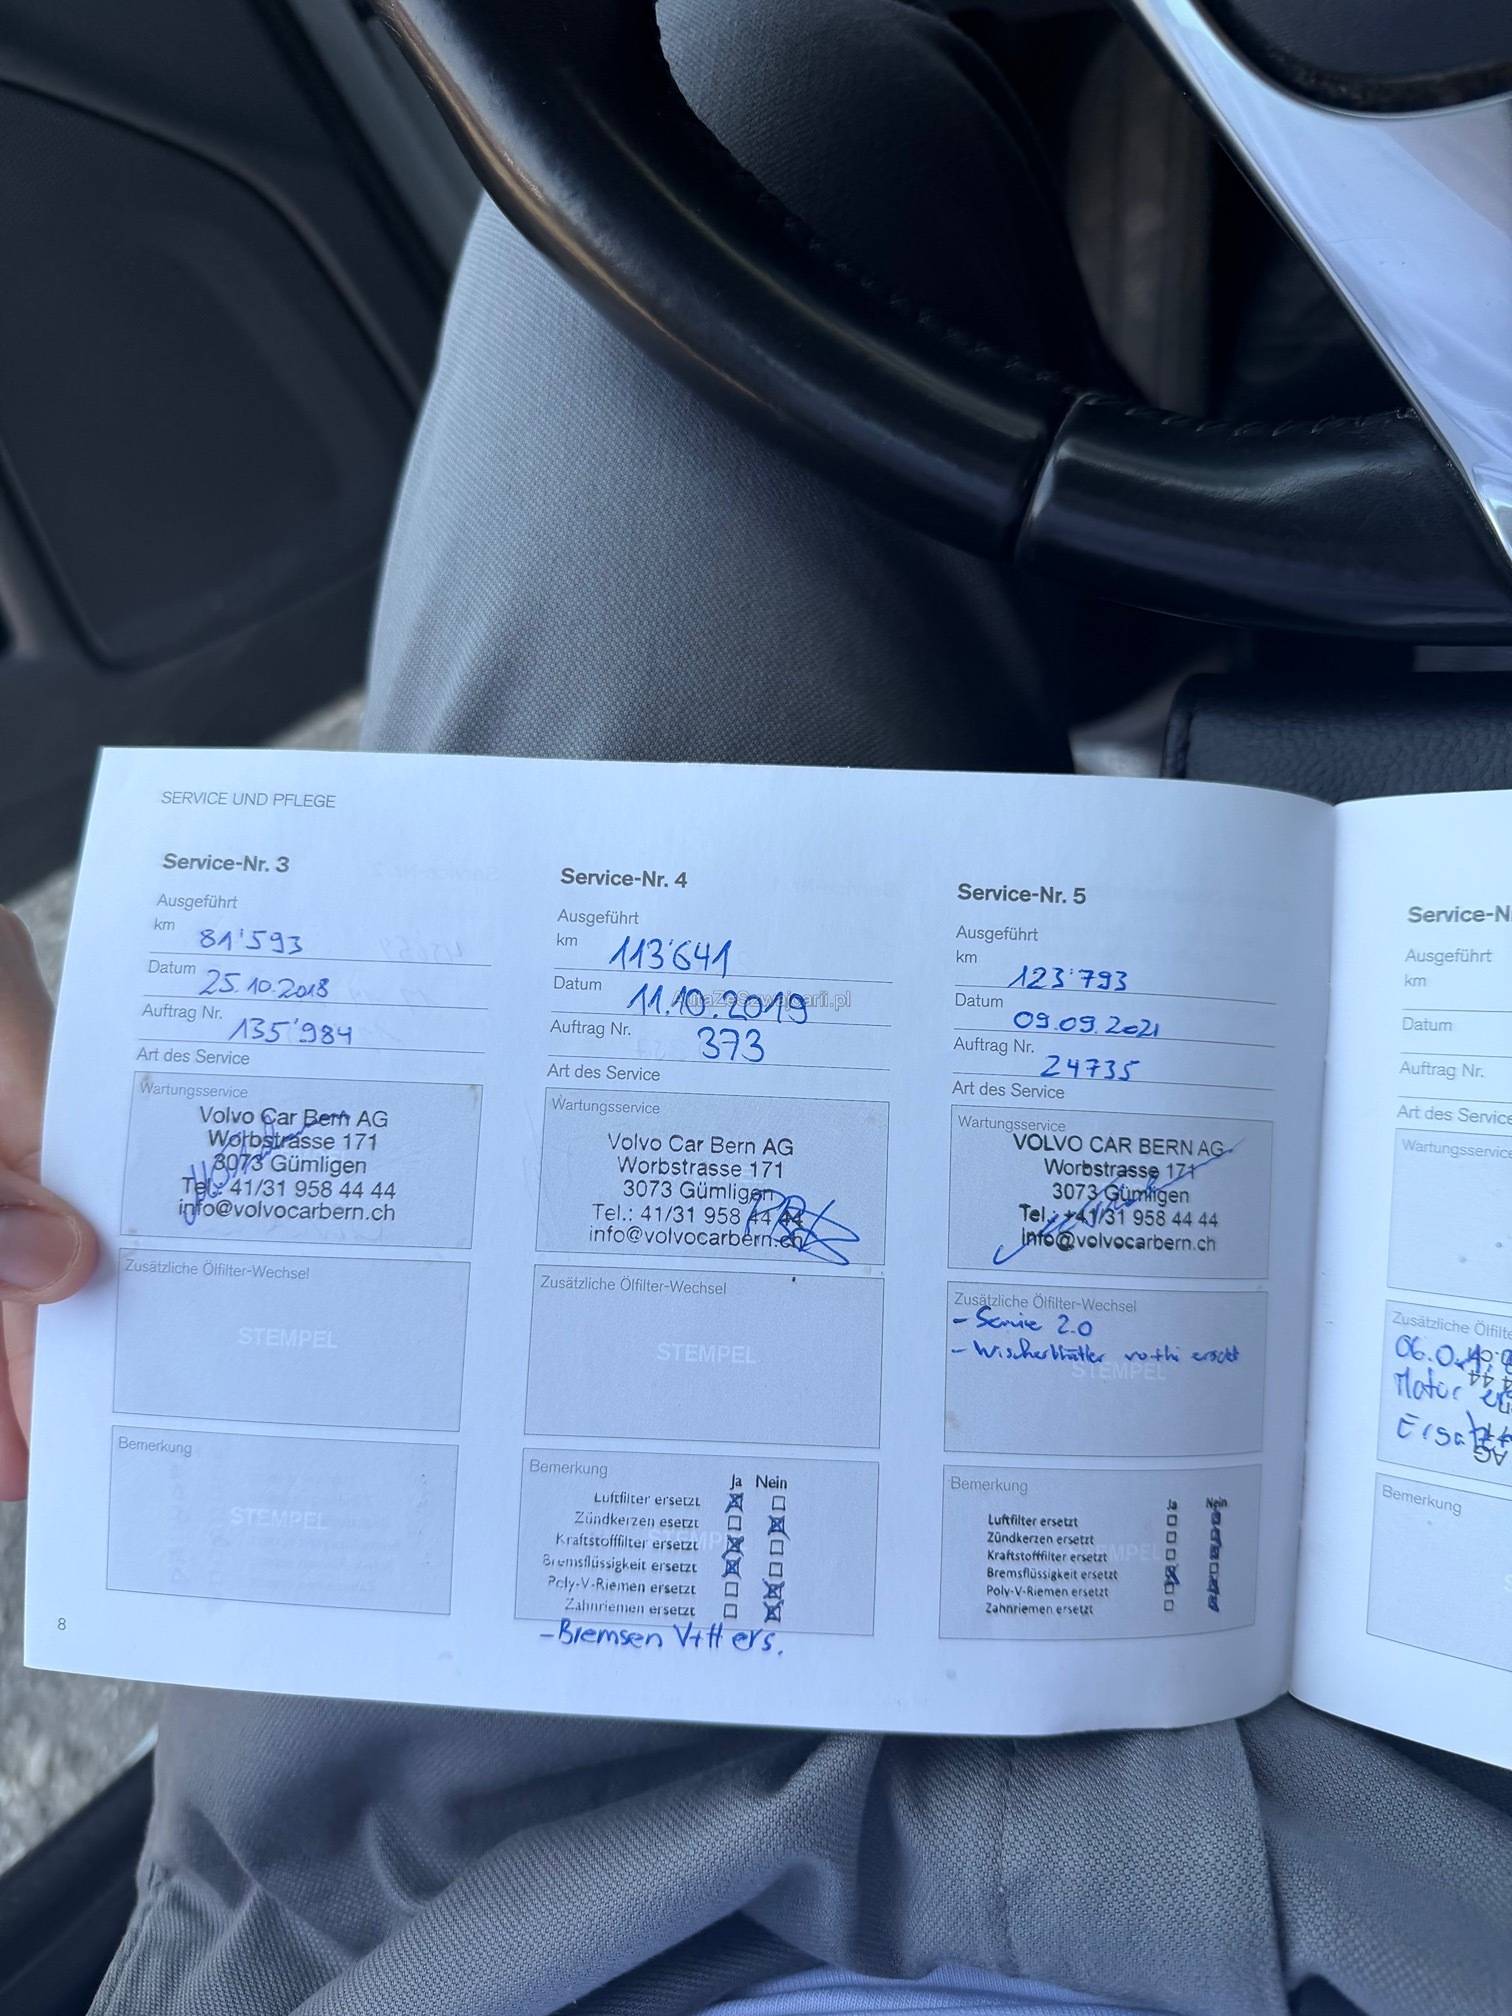 SERVICE UND PFLEGE
Service-Nr. 3
Ausgeführt
km 81'593
Datum 25.10.2018
Auftrag Nr. 135'984
Art des Service
Wartungsservice
Volvo Car Bern AG
Worbstrasse 171
3073 Gümligen
Tel.: 41/31 958 44 44
info@volvocarbern.ch
Zusätzliche Ölfilter-Wechsel
STEMPEL
Bemerkung
STEMPEL
8
Service-Nr. 4
Ausgeführt
km 113'641
Datum 11.10.2019
AutaZeSzwajcarii.pl
Auftrag Nr. 373
Art des Service
Wartungsservice
Volvo Car Bern AG
Worbstrasse 171
3073 Gümligen
Tel.: 41/31 958 44 44
info@volvocarbern.ch
Zusätzliche Ölfilter-Wechsel
STEMPEL
Bemerkung
Ja Nein
Luftfilter ersetzt
Zündkerzen esetzt
Kraftstofffilter ersetzt
Bremsflüssigkeit ersetzt
Poly-V-Riemen ersetzt
Zahnriemen ersetzt
- Bremsen V+H ers.
Service-Nr. 5
Ausgeführt
km 123'793
Datum 09.09.2021
Auftrag Nr. 24735
Art des Service
Wartungsservice
VOLVO CAR BERN AG
Worbstrasse 171
3073 Gümligen
Tel.: +41/31 958 44 44
info@volvocarbern.ch
Zusätzliche Ölfilter-Wechsel
- Service 2.0
- Wischerblätter ersetzt
STEMPEL
Bemerkung
Ja Nein
Luftfilter ersetzt
Zündkerzen ersetzt
Kraftstofffilter ersetzt
Bremsflüssigkeit ersetzt
Poly-V-Riemen ersetzt
Zahnriemen ersetzt
Service-N
Ausgeführt
km
Datum
Auftrag Nr.
Art des Service
Wartungsservice
Zusätzliche Ölfilte
Motor
Bemerkung